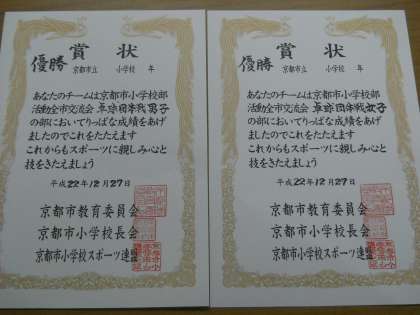 賞状
優勝
京都市立 小学校 年
あなたのチームは京都市小学校部
活動全市交流会 卓球団体戦男子
の部においてりっぱな成績をあげ
ましたのでこれをたたえます
これからもスポーツに親しみ心と
技をきたえましょう
平成22年12月27日
京都市教育委員会
京都市小学校長会
京都市小学校スポーツ連盟
賞状
優勝
京都市立 小学校 年
あなたのチームは京都市小学校部
活動全市交流会 卓球団体戦女子
の部においてりっぱな成績をあげ
ましたのでこれをたたえます
これからもスポーツに親しみ心と
技をきたえましょう
平成22年12月27日
京都市教育委員会
京都市小学校長会
京都市小学校スポーツ連盟